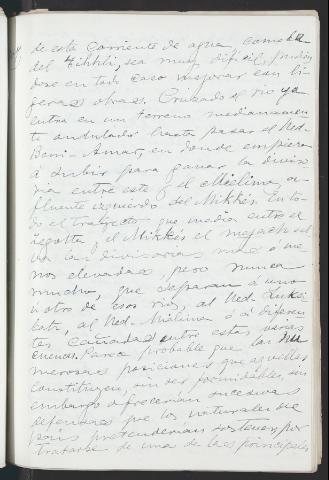 de esta corriente de agua, como la
del Tihili, sea muy difícil, pudién
dose en todo caso mejorar con li
geras obras. Cruzado el río ya
entra en un terreno medianamen
te ondulado hasta pasar el Ued-
Beni-Amar, en donde empieza
a subir para ganar la diviso
ria entre este y el Mielina, a
fluente izquierdo del Mikkés. En to
do el trayecto que media entre el
Zegotta y el Mikkés el mejach sal
va las divisorias mas ó me
nos elevadas, pero nunca
mucho, que separan á uno
ú otro de esos ríos, al Ued.
este, al Ued-Mielina ó á diferen
tes cañadas entre estas varias
cuencas. Parece probable que las nu
merosas posiciones que aquellas
constituyen, sin ser formidables, sin
embargo ofrecerian sucesivas
defensas que los naturales del
país pretenderian sostener, por
tratarse de una de las principales